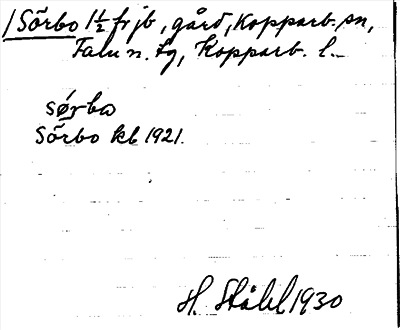 Sörbo 1½ frjb, gård, Kopparb. sn,
Falu n. tg, Kopparb. l.
sǿrbω
Sörbo kb 1921.
H. Ståhl 1930